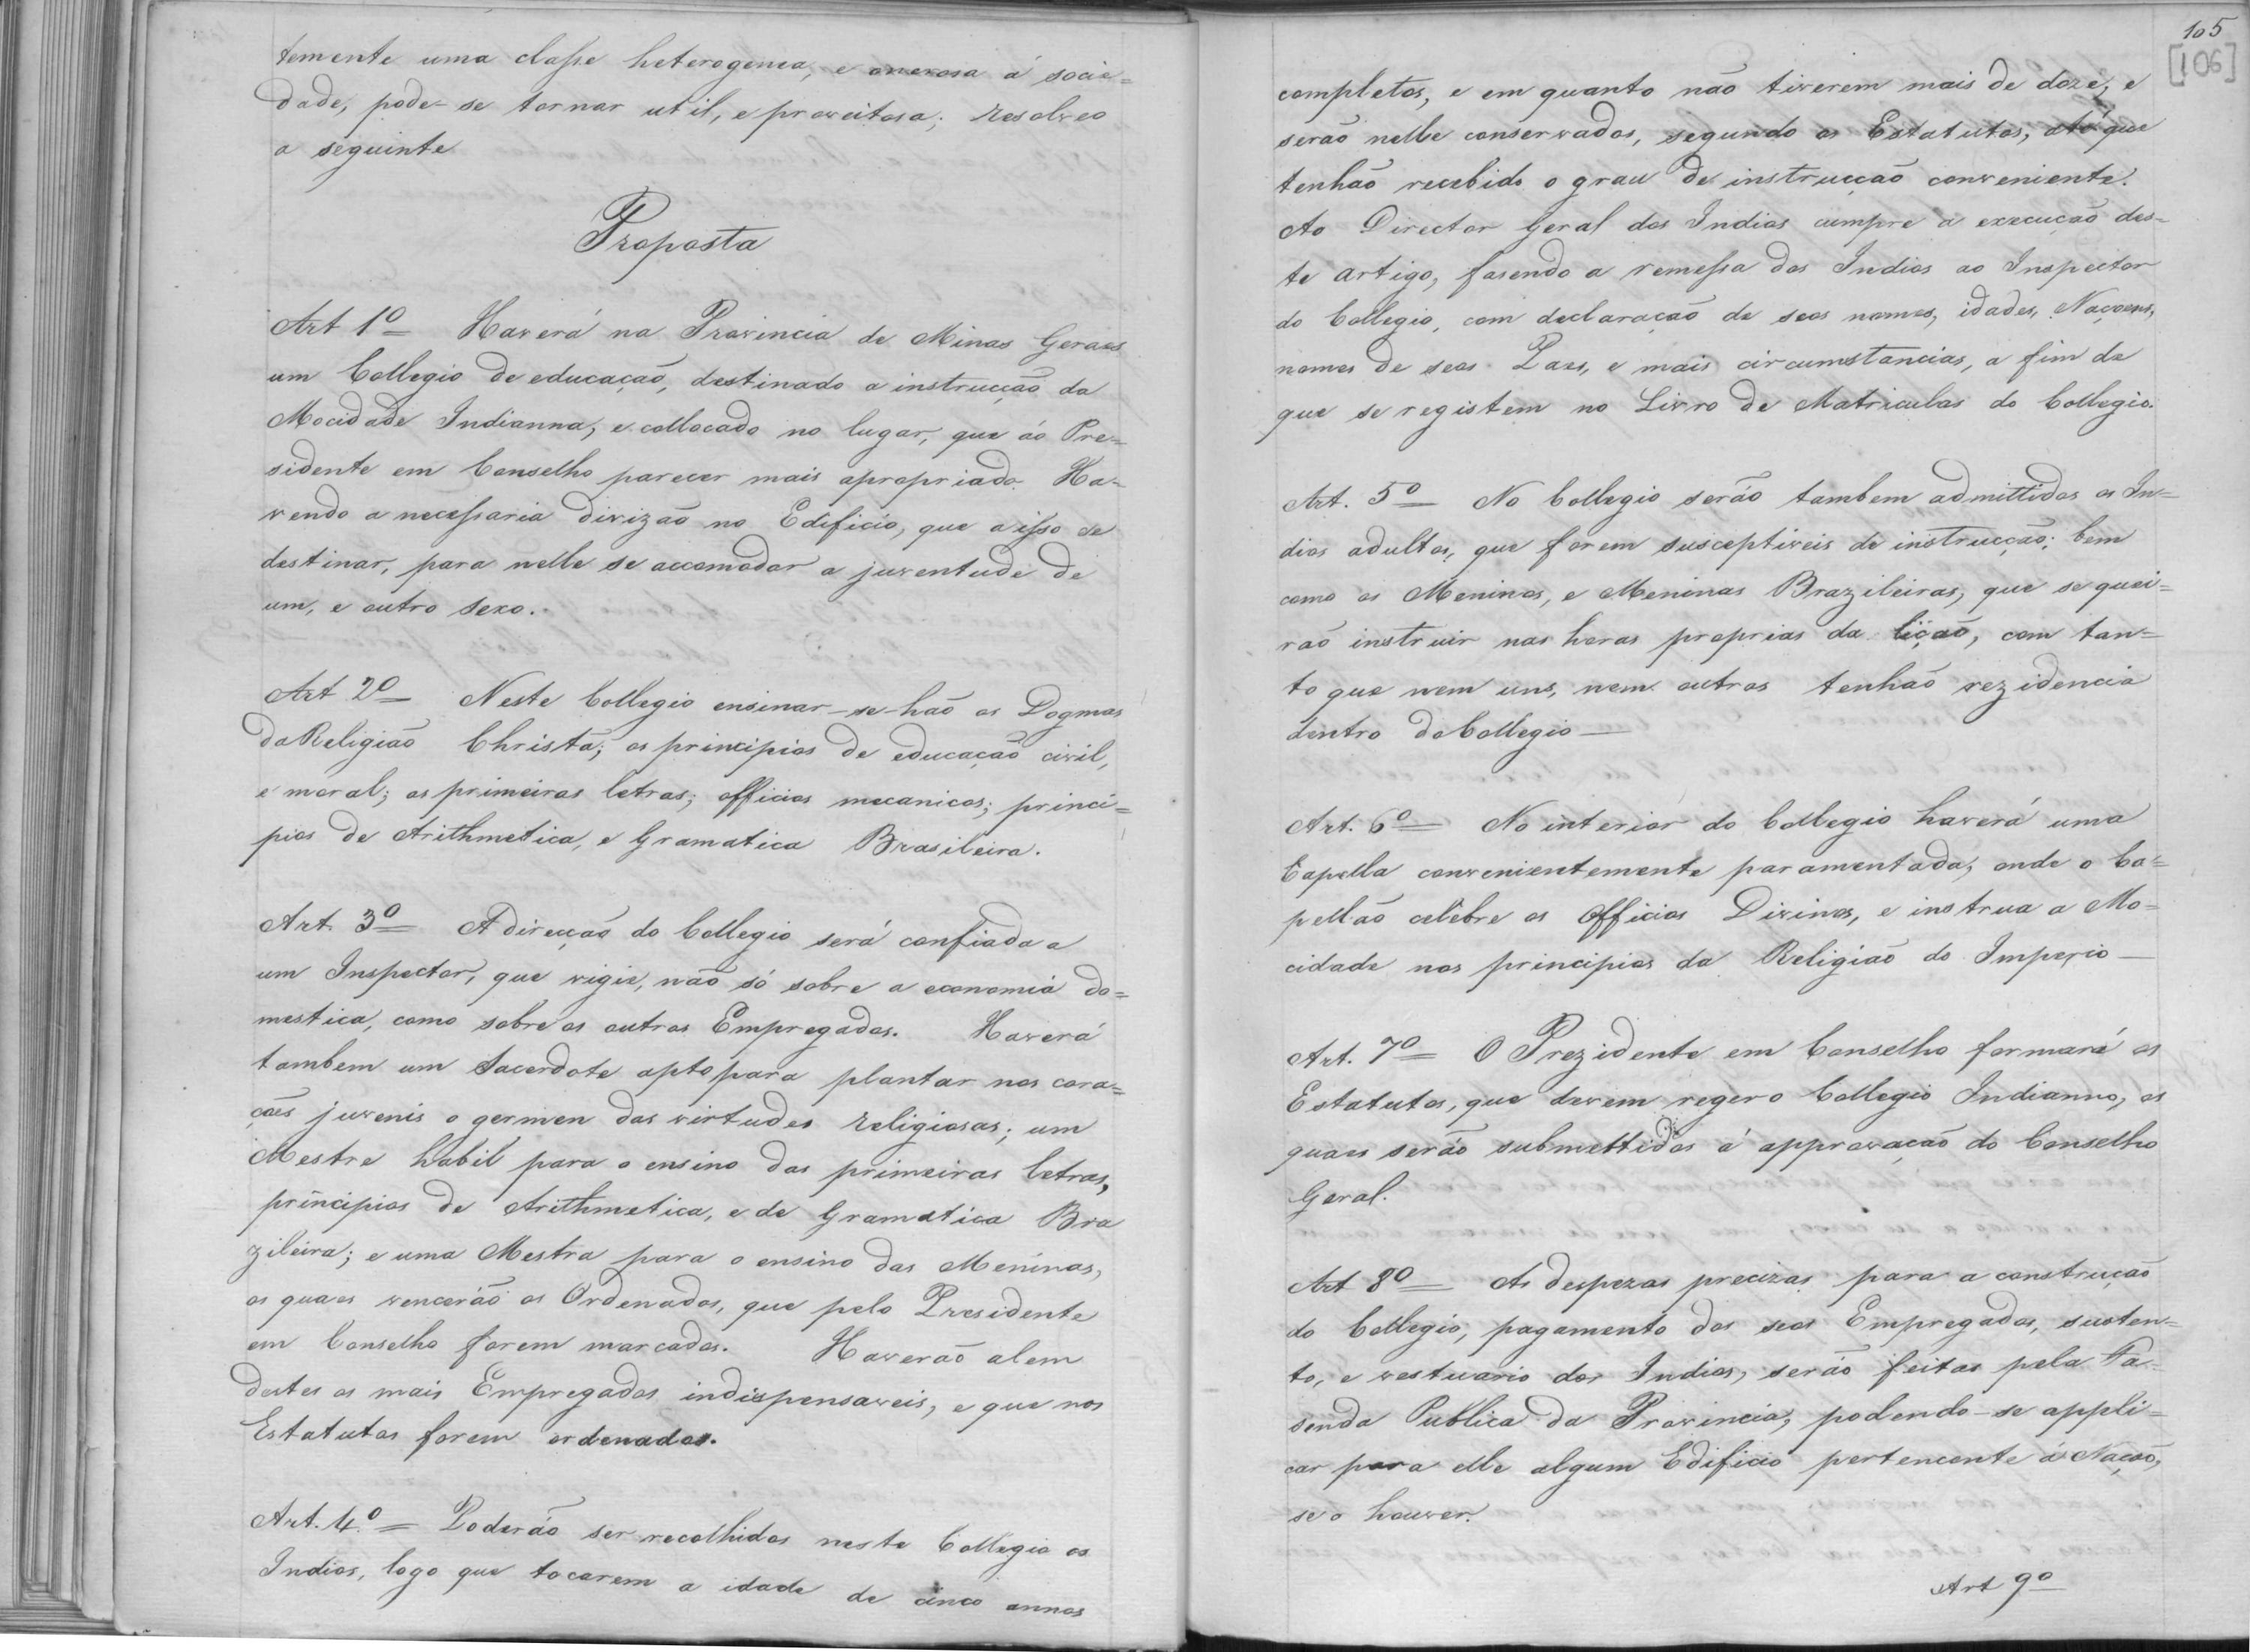 temente uma classe heterogenea, e onerosa á socie=
dade, pode-se tornar util, e proveitosa; resolveo
a seguinte
Proposta
Art 1º Haverá na Provincia de Minas Geraes
um Collegio de educação, destinado a instrucção da
Mocidade Indianna, e collocado no lugar, que áo Pre=
sidente em Conselho parecer mais apropriado. Ha-
vendo a necessaria divizão no Edificio, que a isso se
destinar, para nelle se accomodar a juventude de
um, e outro sexo.
Art 2º Neste Collegio ensinar-se-hão os Dogmas
da Religião Christã; os principios de educação civil,
e moral; as primeiras letras; officios mecanicos; princi=
pios de Arithmetica, e Gramatica Brasileira.
Art. 3º A direcção do Collegio será confiada a
um Inspector, que vigie, não só sobre a economia do=
mestica, como sobre os outros Empregados. Haverá
tambem um Sacerdote apto para plantar nos cora=
ções juvenis o germen das virtudes religiosas; um
Mestre habil para o ensino das primeiras letras,
principios de Arithmetica, e de Gramatica Bra
zileira; e uma Mestra para o ensino das Meninas,
os quaes vencerão os Ordenados, que pelo Presidente
em Conselho forem marcados. Haverão alem
destes os mais Empregados indispensaveis, e que nos
Estatutos forem ordenados.
Art. 4.º = Poderão ser recolhidos neste Collegio os
Indios, logo que tocarem a idade de cinco annos
105
[106]
completos, e em quanto não tiverem mais de doze, e
serão nelle conservados, segundo os Estatutos, até que
tenhão recebido o grau de instrucção conveniente.
Ao Director Geral dos Indios cumpre a execução des-
te artigo, fasendo a remessa dos Indios ao Inspector
do Collegio, com declaração de seos nomes, idades, Naçoens,
nomes de seos Paes, e mais circumstancias, a fim de
que se registem no Livro de Matriculas do Collegio.
Art. 5º No Collegio serão tambem admittidos os In=
dios adultos, que forem susceptiveis de instrucção; bem
como os Meninos, e Meninas Brazileiras, que se quei=
rão instruir nas horas proprias da lição, com tan=
to que nem uns, nem outros tenhão rezidencia
dentro do Collegio
Art. 6º No interior do Collegio haverá uma
Capella convenientemente paramentada, onde o Ca=
pellão celebre os Officios Divinos, e instrua a Mo-
cidade nos principios da Religião do Imperio
Art. 7º O Prezidente em Conselho formará os
Estatutos, que devem reger o Collegio Indianno, os
quaes serão submettidos á approvação do Conselho
Geral.
Art 8º As despezas precizas para a construcção
do Collegio, pagamento dos seos Empregados, susten=
to, e vestuario dos Indios, serão feitas pela Fa-
senda Publica da Provincia, podendo-se appli=
car para elle algum Edificio pertencente á Nação,
se o houver.
Art 9º